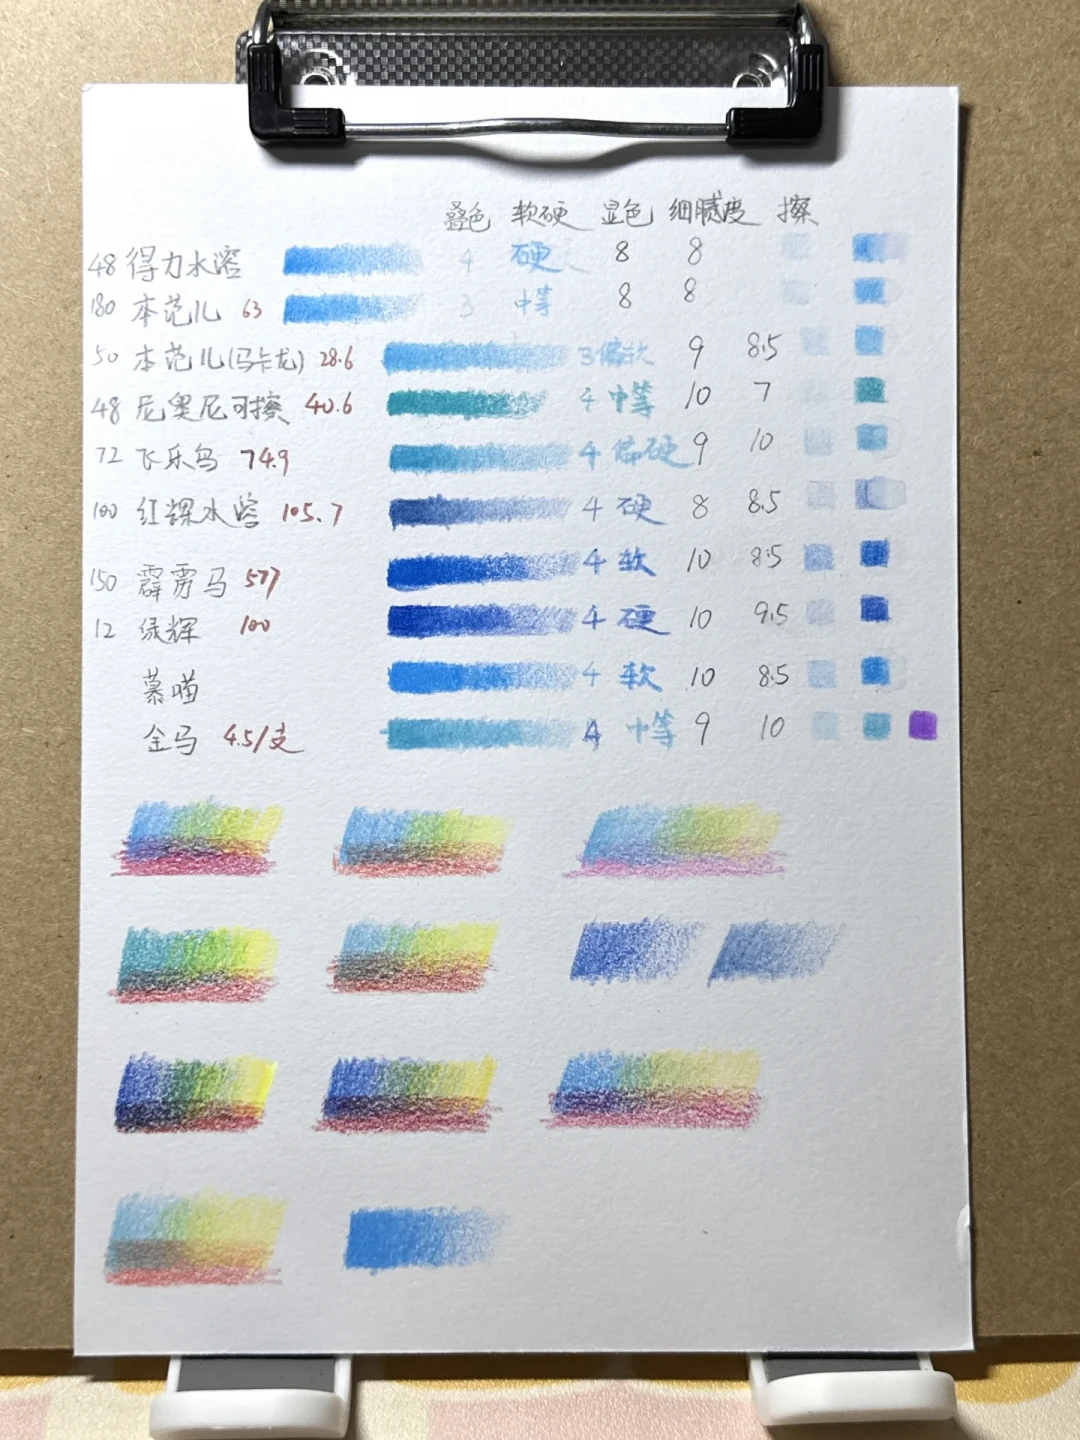 叠色 软硬 显色 细腻度 擦
48 得力水溶 4 硬 8 8
180 本范儿 63 3 中等 8 8
50 本范儿(马卡龙) 28.6 3 偏软 9 8.5
48 尼奥尼可擦 40.6 4 中等 10 7
72 飞乐鸟 74.9 4 偏硬 9 10
100 红辉水溶 105.7 4 硬 8 8.5
150 霹雳马 577 4 软 10 8.5
12 绿辉 100 4 硬 10 9.5
慕喵 4 软 10 8.5
全马 4.5/支 4 中等 9 10